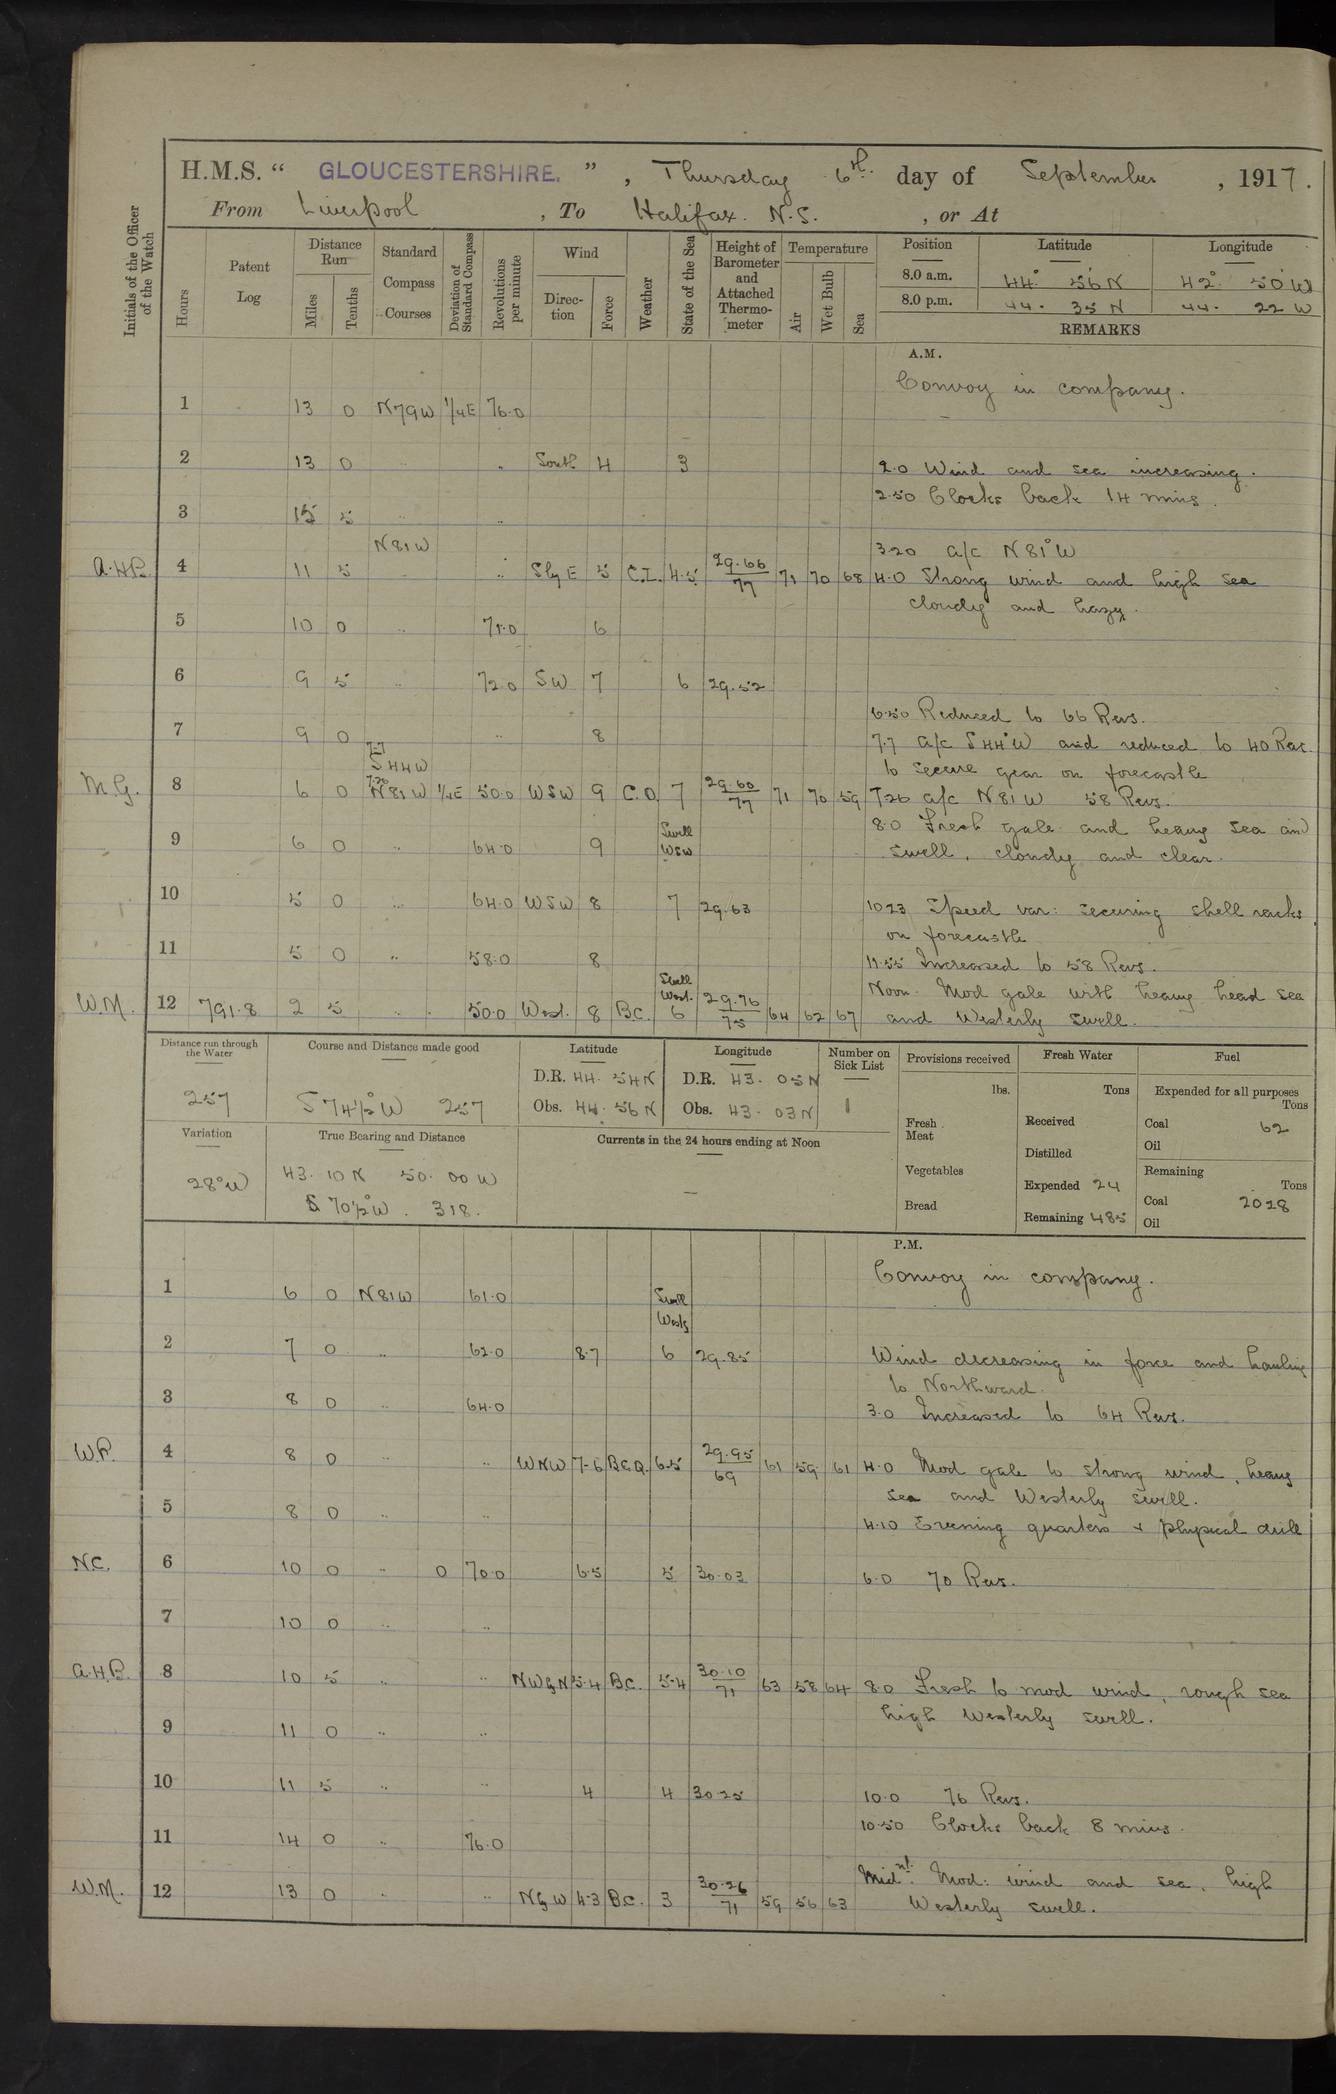 H.M.S. “ GLOUCESTERSHIRE. ” , Thursday 6th. day of September , 1917.
From Liverpool , To Halifax. N.S. , or At
Initials of the Officer of the Watch
Hours
Patent Log
Distance Run
Miles
Tenths
Standard Compass Courses
Deviation of Standard Compass
Revolutions per minute
Wind
Direction
Force
Weather
State of the Sea
Height of Barometer and Attached Thermometer
Temperature
Air
Wet Bulb
Sea
Position Latitude Longitude
8.0 a.m. 44° 56' N 42° 50' W
8.0 p.m. 44. 35 N 44. 22 W
REMARKS
A.M.
Convoy in company.
1 13 0 N79W 1/4E 76.0
2 13 0 .. .. South 4 3 2.0 Wind and sea increasing.
2.50 Clocks back 14 mins.
3 15 5 .. ..
N81W 3.20 a/c N81°W
A.H.B. 4 11 5 .. SbyE 5 C.Z. 4.5 29.66/77 71 70 68 4.0 Strong wind and high sea
cloudy and hazy.
5 10 0 .. 71.0 6
6 9 5 .. 72.0 SW 7 6 29.52
6.50 Reduced to 66 Revs.
7 9 0 .. 8 7.7 a/c S44°W and reduced to 40 Revs.
7.7 S44W to secure gear on forecastle
M.G. 8 6 0 7.26 N81W 1/4E 50.0 WSW 9 C.O. 7 29.60/77 71 70 59 7.26 a/c N81W 58 Revs.
8.0 Fresh gale and heavy sea and
9 6 0 .. 64.0 9 Swell WSW swell, cloudy and clear.
10 5 0 .. 64.0 WSW 8 7 29.63 10.23 Speed var: securing shell racks
on forecastle
11 5 0 .. 58.0 8 11.55 Increased to 58 Revs.
Swell West. Noon. Mod gale with heavy head sea
W.M. 12 791.8 2 5 .. 50.0 West. 8 B.C. 6 29.76/75 64 62 67 and Westerly swell.
Distance run through the Water
257
Course and Distance made good
S 74½°W 257
Latitude
D.R. 44. 54N
Obs. 44. 56 N
Longitude
D.R. 43. 05N
Obs. 43. 03N
Number on Sick List
1
Variation
28°W
True Bearing and Distance
43. 10N 50. 00W
S 70½°W. 318.
Currents in the 24 hours ending at Noon
—
Provisions received
lbs.
Fresh Meat
Vegetables
Bread
Fresh Water
Tons
Received
Distilled
Expended 24
Remaining 485
Fuel
Expended for all purposes
Tons
Coal 62
Oil
Remaining
Tons
Coal 2018
Oil
P.M.
Convoy in company.
1 6 0 N81W 61.0 Swell Westy
2 7 0 .. 62.0 8.7 6 29.85 Wind decreasing in force and hauling
to Northward.
3 8 0 .. 64.0 3.0 Increased to 64 Revs.
W.P. 4 8 0 .. .. WNW 7-6 B.C.Q. 6.5 29.95/69 61 59 61 4.0 Mod gale to strong wind, heavy
sea and Westerly swell.
5 8 0 .. .. 4.10 Evening quarters & physical drill
N.C. 6 10 0 .. 0 70.0 6.5 5 30.03 6.0 70 Revs.
7 10 0 .. ..
A.H.B. 8 10 5 .. .. NWbyN 5.4 B.C. 5.4 30.10/71 63 58 64 8.0 Fresh to mod wind, rough sea
high Westerly swell.
9 11 0 .. ..
10 11 5 .. .. 4 4 30.25 10.0 76 Revs.
10.50 Clocks back 8 mins.
11 14 0 .. 76.0
W.M. 12 13 0 .. .. NbyW 4.3 B.C. 3 30.26/71 59 56 63 Midnt. Mod: wind and sea, high
Westerly swell.